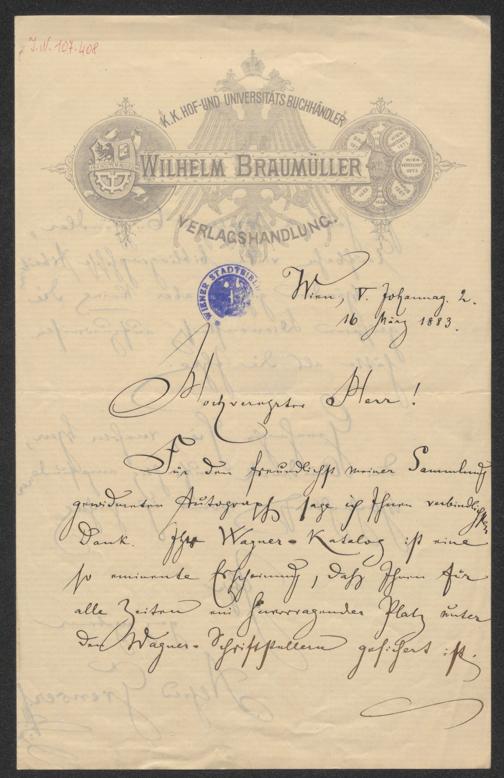 J.N. 107.408
K.K. HOF-UND UNIVERSITÄTS BUCHHÄNDLER
WILHELM BRAUMÜLLER
VERLAGSHANDLUNG.
WIENER STADTBIBL
Wien, V. Johannag. 2.
16 März 1883.
Hochverehrter Herr!
Für den freundlichst meiner Sammlung
gewidmeten Autograph sage ich Ihnen verbindlichsten
Dank. Ihr Wagner-Katalog ist eine
so eminente Erscheinung, daß Ihnen für
alle Zeiten ein hervorragender Platz unter
den Wagner-Schriftstellern gesichert ist.